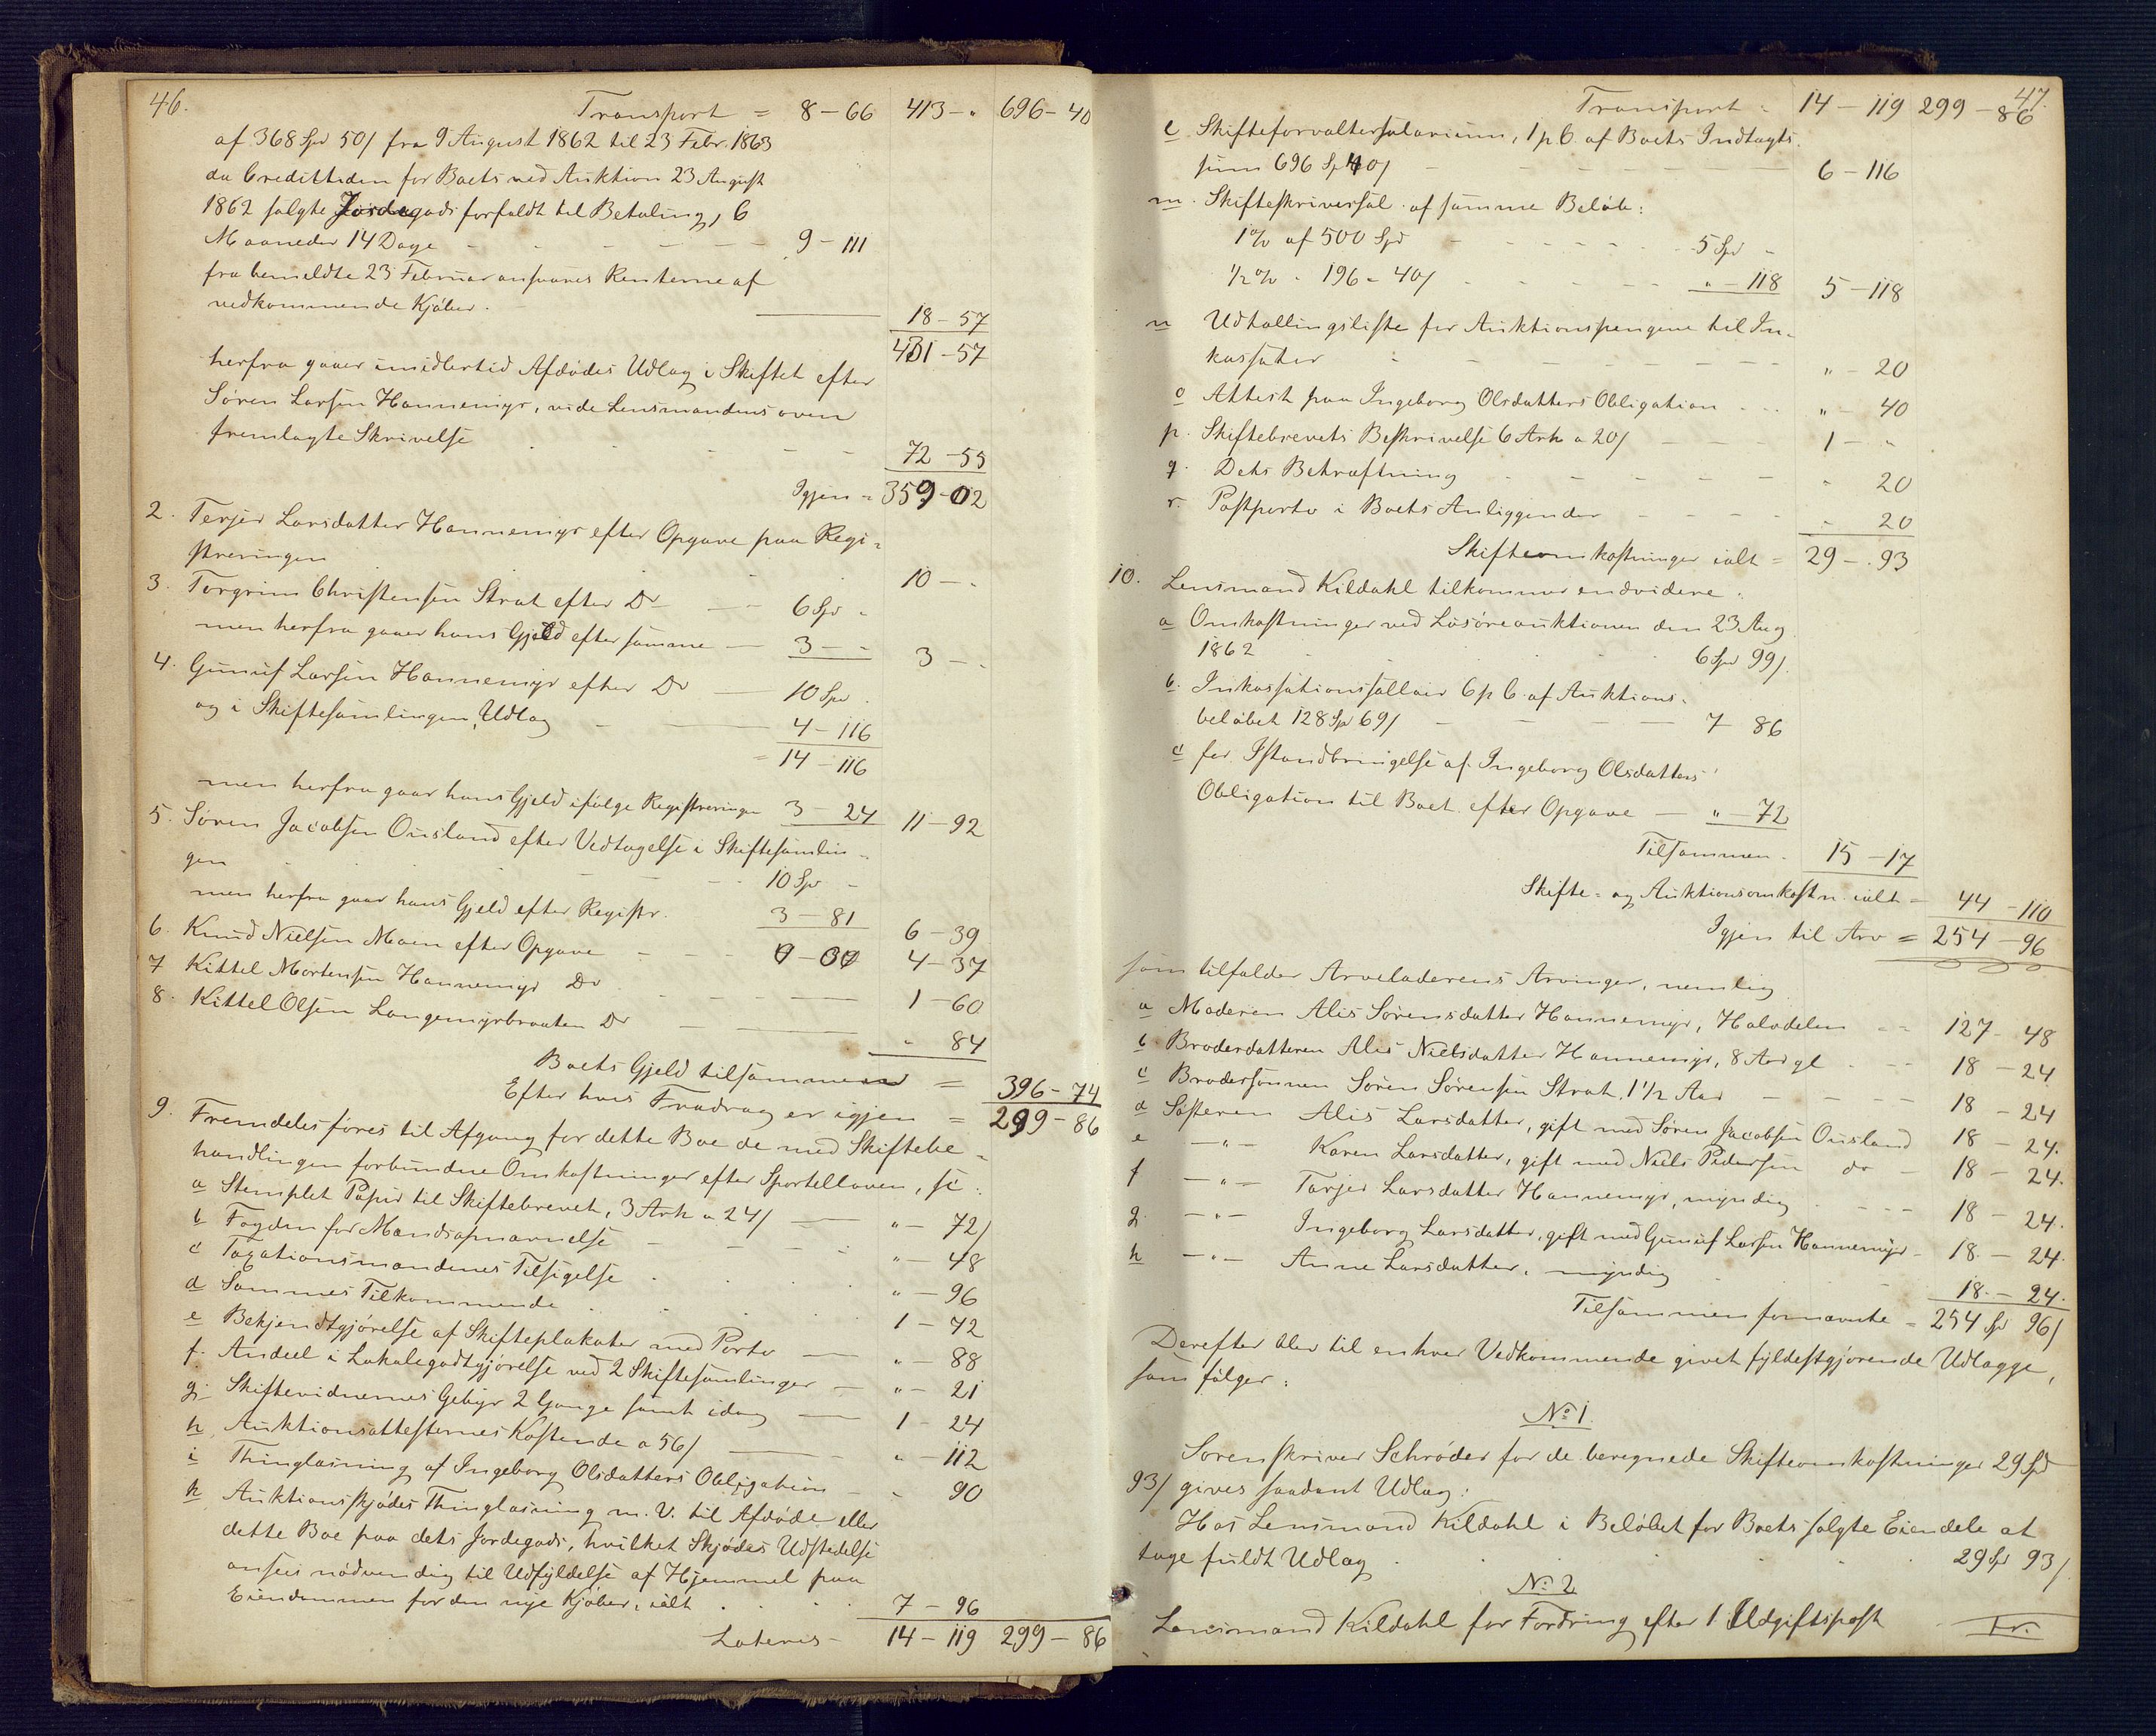 46.
Transport = 8 – 66 413 – " 696 – 40
af 368 Spd 50/ fra 9 August 1862 til 23 Febr. 1863
da Credittiden for Boets ved Auktion 23 August
1862 solgte Jordegods forfaldt til Betaling, 6
Maaneder 14 Dage – – – – 9 – 111
fra bemeldte 23 Februar ansvares Renterne af
vedkommende Kjøber. 18 – 57
431 – 57
herfra gaaer imidlertid Afdødes Udlæg i Skiftet efter
Søren Larsen Hannemyr, vide Lensmandens oven
fremlagte Skrivelse – – – 72 – 55
Igjen = 359 – 02
2. Terjer Larsdatter Hannemyr efter Opgave paa Regi=
streringen 10 – "
3. Torgrim Christensen Strat efter Do – 6 Spd "
men herfra gaaer hans Gjeld efter samme – 3 – " 3 – "
4. Gunuf Larsen Hannemyr efter Do – 10 Spd.
og i Skiftesamlingen, Udlæg – 4 – 116
= 14 – 116
men herfra gaar hans Gjeld ifølge Registreringen 3 – 24 11 – 92
5. Søren Jacobsen Ousland efter Vedtagelse i Skiftesamlin=
gen – – – 10 Spd –
men herfra gaar hans Gjeld efter Registr. 3 – 81 6 – 39
6. Knud Nielsen Moen efter Opgave – – 4 – 37
7 Kittel Mortensen Hannemyr Do – – 1 – 60
8. Kittel Olsen Langemyrbraaten Do – – " 84
Boets Gjeld tilsammen = 396 – 74
Efter hvis Fradrag er igjen = 299 – 86
9. Fremdeles føres til Afgang for dette Boe de med Skiftebe=
handlingen forbundne Omkostninger efter Sportelloven, sc:
a Stemplet Papir til Skiftebrevet, 3 Ark a 24/ – " – 72/
b Fogden for Mandsopnævnelse – – " – 48
c Taxationsmændenes Tilsigelse . . " – 96
d Sammes Tilkommende . . 1 – 72
e Bekjendtgjørelse af Skifteplakater med Porto – " – 88
f. Andeel i Lokalegodtgjørelse ved 2 Skiftesamlinger – " – 21
g. Skiftevidnernes Gebyr 2 Gange samt idag – 1 – 24
h Auktionsattesternes Kostende a 56/ – " – 112
i Thinglæsning af Ingeborg Olsdatters Obligation – " 90
k Auktionsskjødes Thinglæsning m. V. til Afdøde eller
dette Boe paa dets Jordegods, hvilket Skjødes Udstedelse
ansees nødvendig til Udfyldelse af Hjemmel paa
Eiendommen for den nye Kjøber, ialt . . 7 – 96
Lateris – 14 – 119 299 – 86
47.
Transport = 14 – 119 299 – 86
l Skifteforvaltersalarium, 1 p C. af Boets Indtægts=
sum 696 Sp 40/ – – – 6 – 116
m. Skifteskriversal. af samme Beløb:
1% af 500 Spd – – – 5 Spd –
1/2 % " 196 " 40/ – – – " – 118 5 – 118
n Udtallingsliste for Auktionspengene til In=
kassator – – – " – 20
o Attest paa Ingeborg Olsdatters Obligation . . . " – 40
p. Skiftebrevets Beskrivelse 6 Ark a 20/ – – 1 – "
q. Dets Bekræftning – – – " 20
r. Postporto i Boets Anliggender – – – " 20
Skifteomkostninger ialt = 29 – 93
10. Lensmand Kildahl tilkommer endvidere:
a Omkostninger ved Løsøreauktionen den 23 Aug
1862 . . . 6 Spd 99/.
b. Inkassationssallair 6 p C. af Auktions=
beløbet 128 Sp 69/ – – – 7 86
c for Istandbringelse af Ingeborg Olsdatters
Obligation til Boet efter Opgave – " – 72
Tilsammen – 15 – 17
Skifte= og Auktionsomkostn. ialt = 44 – 110
Igjen til Arv = 254 – 96
som tilfalder Arveladerens Arvinger, nemlig
a Moderen Alis Sørensdatter Hannemyr, Halvdelen – – 127 – 48
b Broderdatteren Alis Nielsdatter Hannemyr, 8 Aar gl . – 18 – 24
c Brodersønnen Søren Sørensen Strat, 1 1/2 Aar – – – 18 – 24
d Søsteren Alis Larsdatter, gift med Søren Jacobsen Ousland 18 – 24.
e – " – Karen Larsdatter, gift med Niels Pedersen do – 18 – 24.
f – " – Tarjer Larsdatter Hannemyr, myndig . – – – 18 – 24.
g. – " – Ingeborg Larsdatter, gift med Gunuf Larsen Hannemyr – 18. – 24.
h – " – Anne Larsdatter, myndig . . – 18. – 24.
Tilsammen fornævnte = 254 Spd 96/
Derefter blev til enhver Vedkommende givet fyldestgjørende Udlægge,
som følger:
No 1.
Sorenskriver Schrøder for de beregnede Skifteomkostninger 29 Spd
93/ gives saadant Udlæg:
Hos Lensmand Kildahl i Beløbet for Boets solgte Eiendele at
tage fuldt Udlæg . . . 29 Spd 93/
No 2
Lensmand Kildahl for Fordring efter 1 Udgiftspost
Tr.